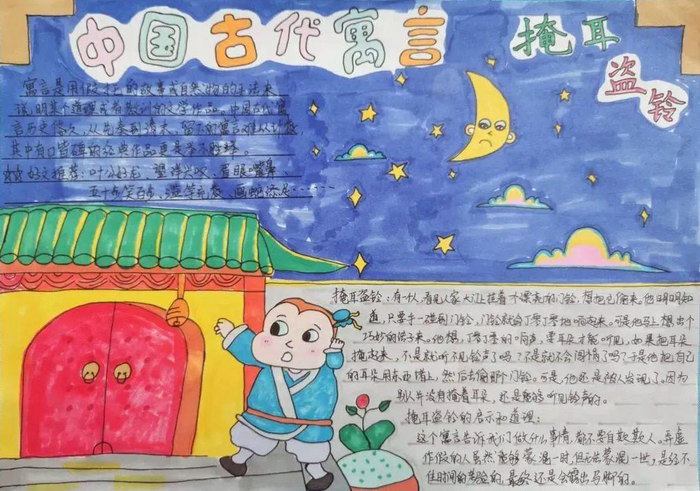 中国古代寓言
掩耳
盗铃
寓言是用假托的故事或自然物的手法来
说明某个道理或有教训的文学作品。中国古代寓
言历史悠久，从先秦到清末，留下的寓言难以
其中有口皆碑的经典作品更是
好文推荐：叶公好龙、望洋兴叹、盲眼
五十步笑百步、滥竽充数、画蛇添足……
掩耳盗铃：有一个人，看见人家大门上挂着个漂亮的门铃，想把它偷来。他明明知
道，只要手一碰到门铃，门铃就会丁零丁零地响起来。可是他马上想出个
巧妙的法子来。他想，丁零丁零的响声，要耳朵才能听见，如果把耳朵
掩起来，不是就听不见铃声了吗？不是就不会闯祸了吗？于是他把自己
的耳朵用东西堵上，然后去偷那个门铃。可是，他还是被人发现了。因为
别人并没有掩着耳朵，还是能够听见铃声的。
掩耳盗铃的启示和道理：
这个寓言告诉我们做什么事情，都不要自欺欺人。弄虚
作假的人虽然能够蒙混一时，但无法蒙混一世，是经不
住时间的考验的，最终还是会露出马脚的。